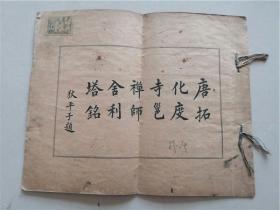 唐拓
化度
寺邕
禅師
舍利
塔銘
狄平子題